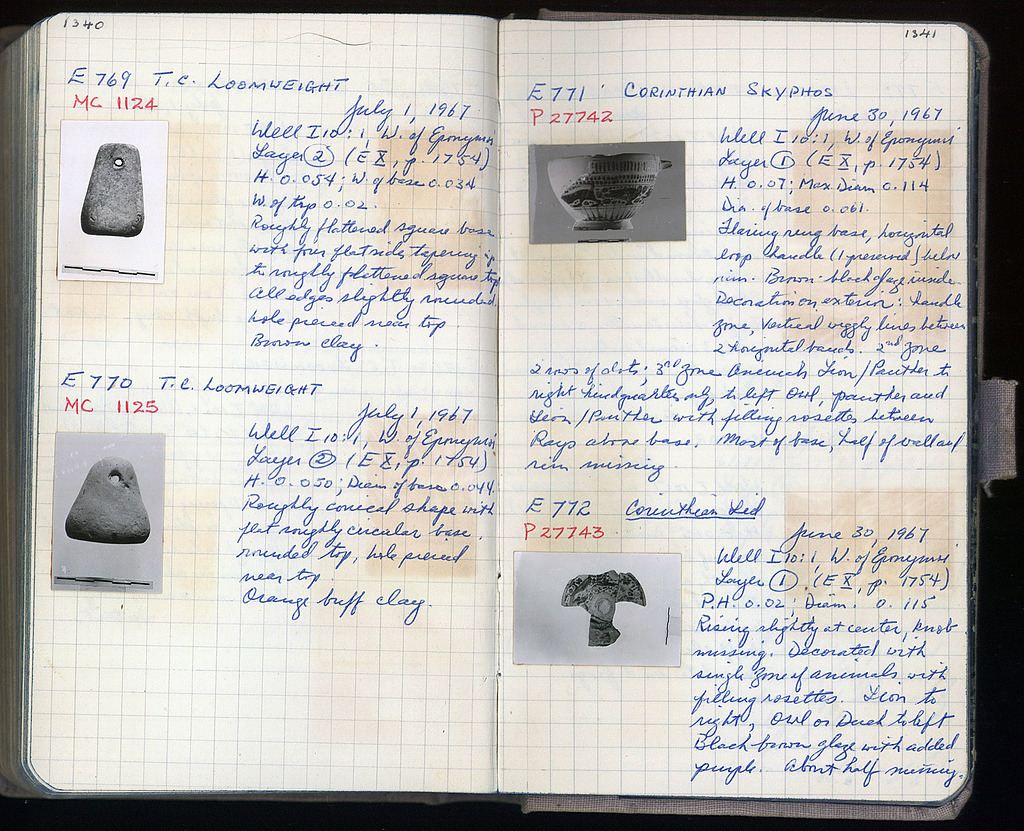 1340
E 769 T.C. LOOMWEIGHT
MC 1124
July 1, 1967
Well I 10:1, W. of Eponymoi
Layer ② (E X, p. 1754)
H. 0.054; W. of base 0.034
W. of top 0.02.
Roughly flattened square base
with four flat sides tapering up
to roughly flattened square top
All edges slightly rounded.
hole pierced near top.
Brown clay.
E 770 T.C. LOOMWEIGHT
MC 1125
July 1, 1967
Well I 10:1, W. of Eponymoi
Layer ② (E X, p. 1754)
H. 0.050; Diam of base 0.044.
Roughly conical shape with
flat roughly circular base.
rounded top, hole pierced
near top.
Orange buff clay.
1341
E 771 CORINTHIAN SKYPHOS
P 27742
June 30, 1967
Well I 10:1, W. of Eponymoi
Layer ① (E X, p. 1754)
H. 0.07; Max Diam 0.114
Dia. of base 0.061.
Flaring ring base, horizontal
loop handle (1 preserved) below
rim. Brown-black glaze inside.
Decoration on exterior: handle
zone, vertical wiggly lines between
2 horizontal bands. 2nd zone
2 rows of dots; 3rd zone Animals Lion/Panther to
right hindquarters only, to left Owl, panther and
Lion/Panther with filling rosettes between
Rays above base. Most of base, half of wall and
rim missing.
E 772 Corinthian Lid
P 27743
June 30, 1967
Well I 10:1, W. of Eponymoi
Layer ① (E X, p. 1754)
P.H. 0.02; Diam: 0.115
Rising slightly at center, knob
missing. Decorated with
single zone of animals with
filling rosettes. Lion to
right, Owl or Duck to left
Black brown glaze with added
purple. About half missing.